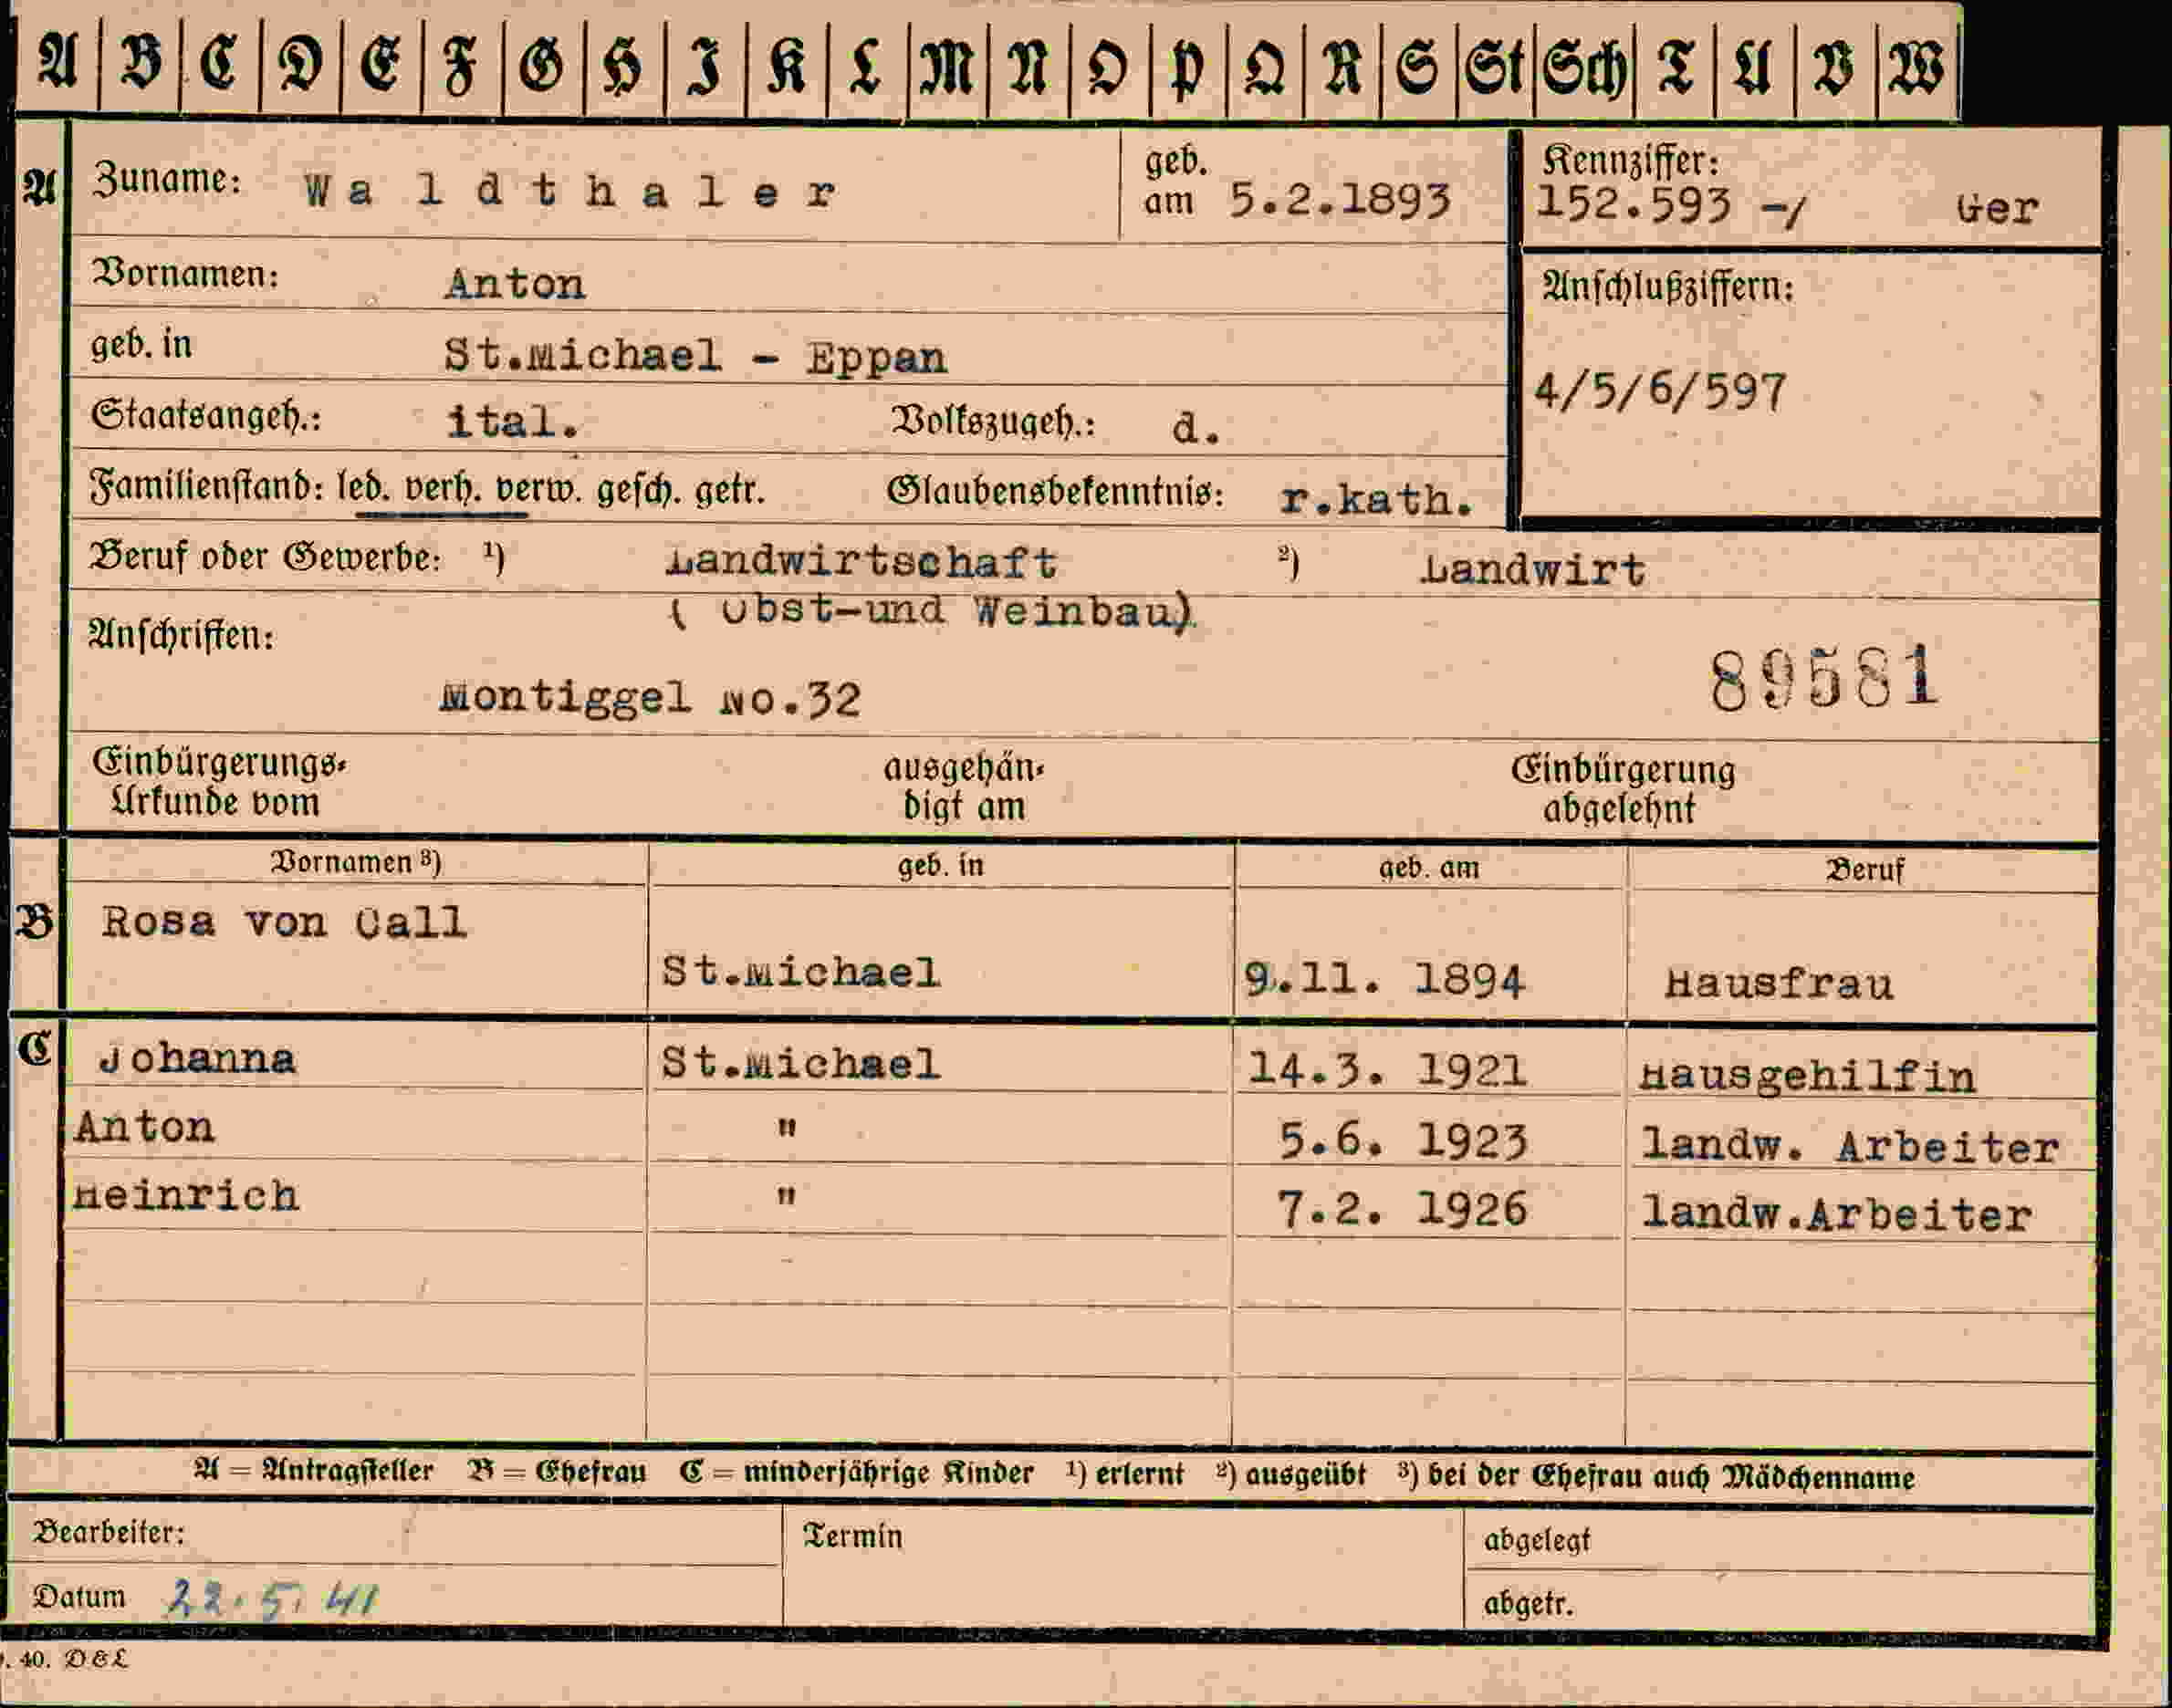 A B C D E F G H I K L M N O P Q R S St Sch T U V W
A Zuname: Waldthaler geb. am 5.2.1893 Kennziffer: 152.593 -/ Ger
Vornamen: Anton Anschlußziffern:
geb. in St.Michael - Eppan 4/5/6/597
Staatsangeh.: ital. Volkszugeh.: d.
Familienstand: led. verh. verw. gesch. getr. Glaubensbekenntnis: r.kath.
Beruf oder Gewerbe: ¹) Landwirtschaft ²) Landwirt
( Obst-und Weinbau)
Anschriften:
Montiggel No.32 89581
Einbürgerungs- ausgehän- Einbürgerung
Urkunde vom digt am abgelehnt
Vornamen ³) geb. in geb. am Beruf
B Rosa von Call
St.Michael 9.11. 1894 Hausfrau
C Johanna St.Michael 14.3. 1921 Hausgehilfin
Anton " 5.6. 1923 landw. Arbeiter
Heinrich " 7.2. 1926 landw.Arbeiter
A = Antragsteller B = Ehefrau C = minderjährige Kinder ¹) erlernt ²) ausgeübt ³) bei der Ehefrau auch Mädchenname
Bearbeiter: Termin abgelegt
Datum 22.5.41 abgetr.
. 40. D&L